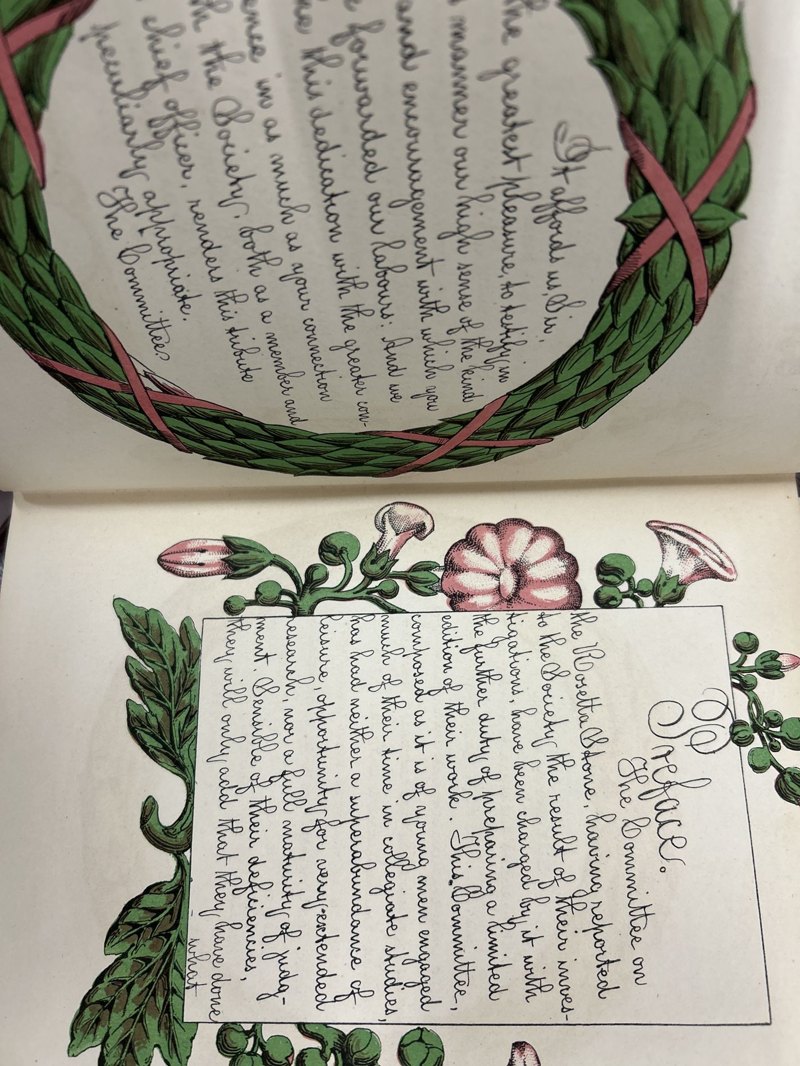 It affords us, Sir,
the greatest pleasure, to testify in
manner our high sense of the kind
and encouragement with which you
forwarded our labours: And we
this dedication with the greater con-
ence in as much as your connection
the Society, both as a member and
chief officer, renders this tribute
peculiarly appropriate.
The Committee
Preface.
The Committee on
the Rosetta Stone, having reported
to the Society the result of their inves-
tigations, have been charged by it with
the further duty of preparing a limited
edition of their work. This Committee,
composed as it is of young men engaged
much of their time in collegiate studies,
has had neither a superabundance of
leisure, opportunity for very extended
research, nor a full maturity of judg-
ment. Sensible of their deficiencies,
they will only add that they have done
what